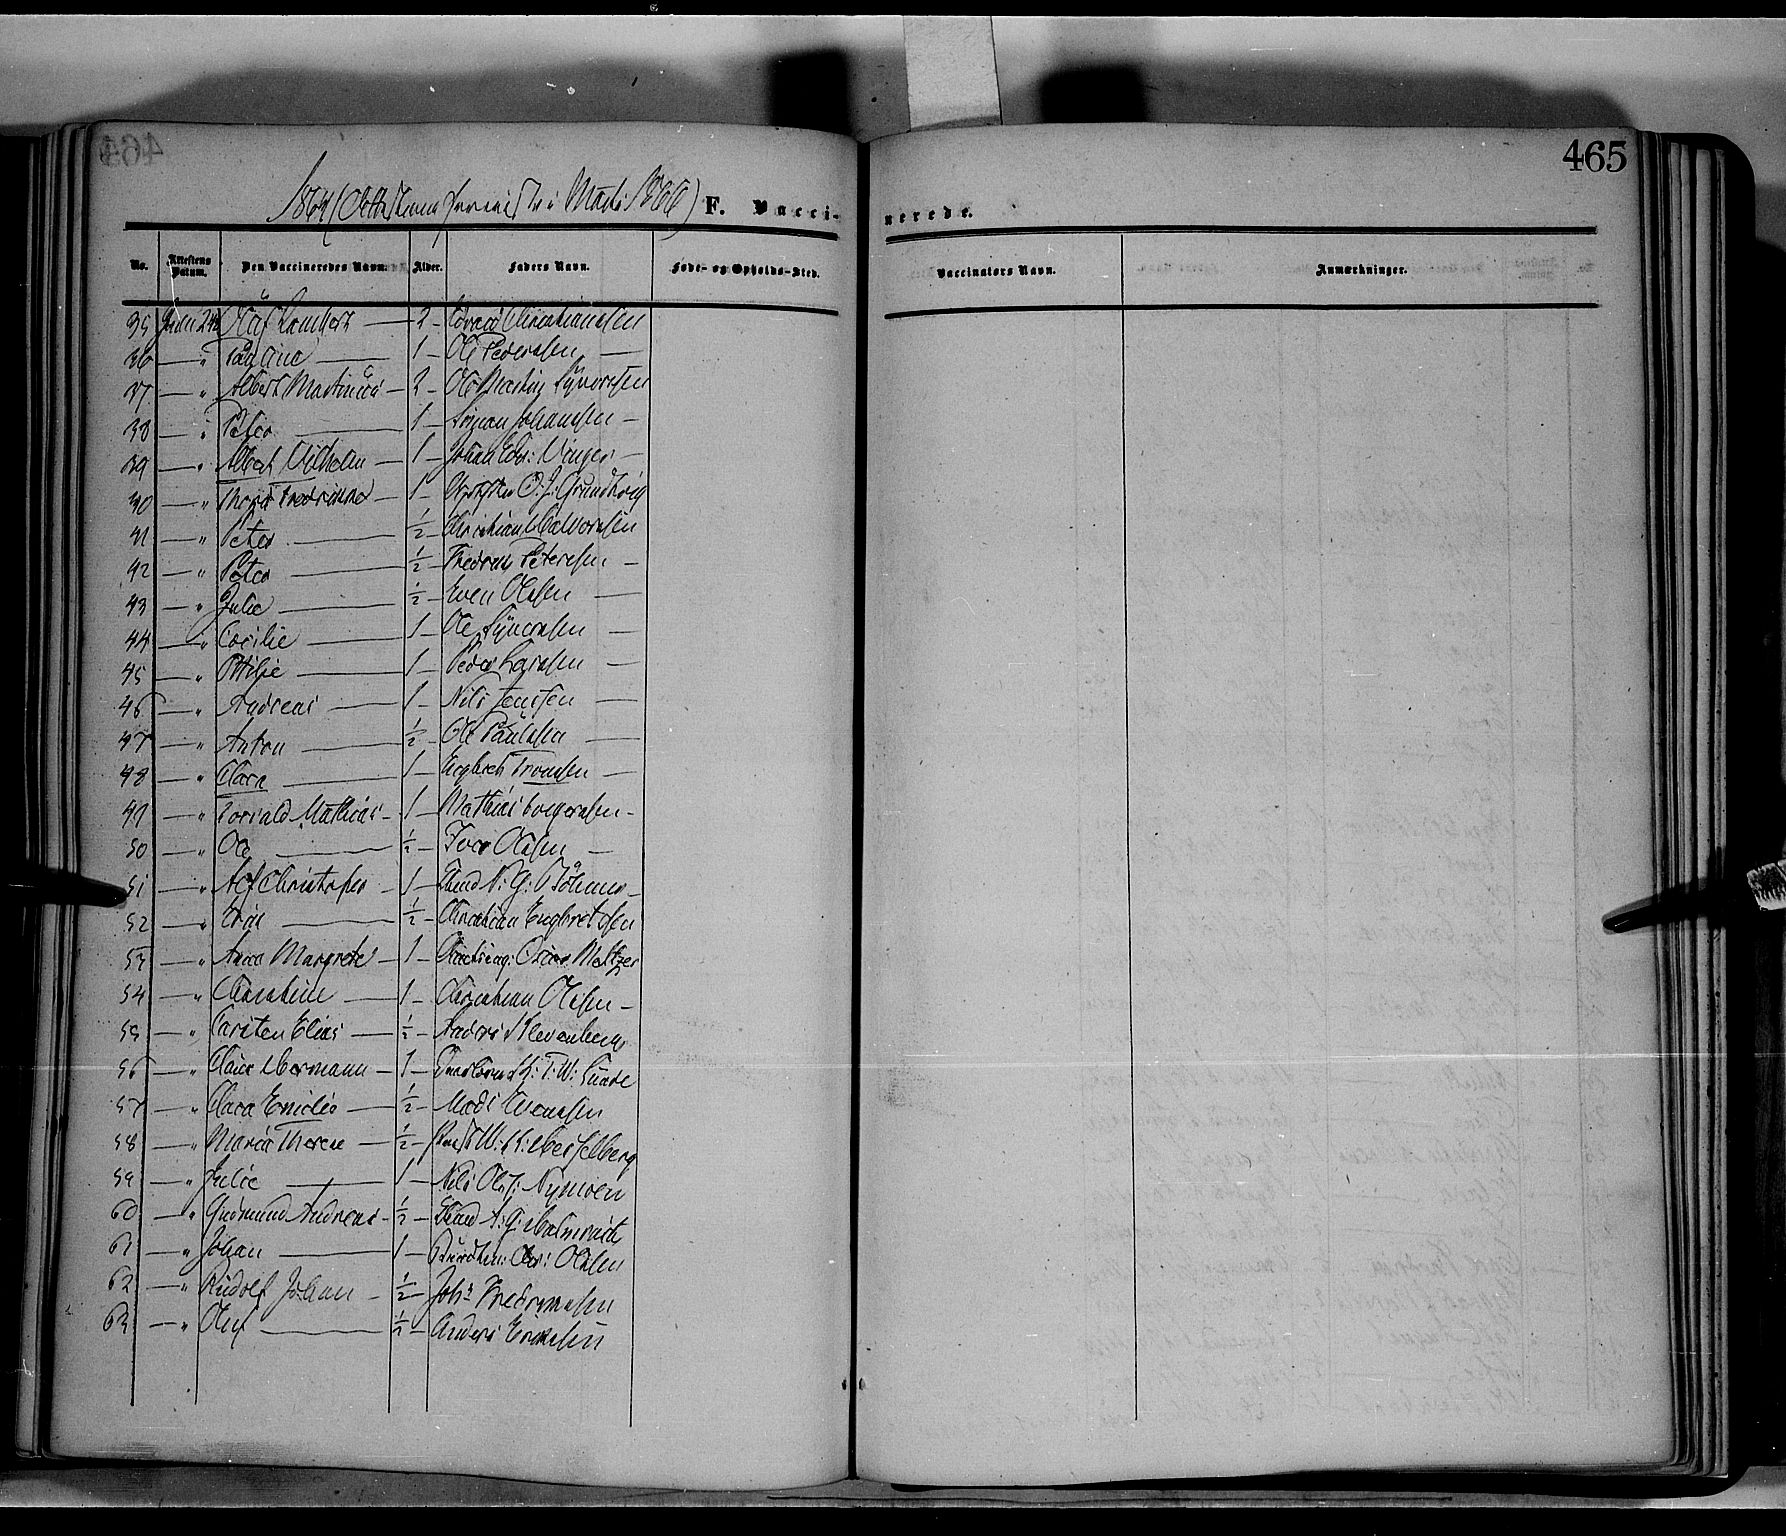 465
1864 (Attesterne i Marts 1866) F. Vacci-nerede.
No. Attestens Datum. Den Vaccineredes Navn. Alder. Faders Navn. Føde- og Opholds-Sted. Vaccinators Navn. Anmærkninger.
35 Juni 24 Olaf Lambert — 2 – Edvard Christiansen
36 — " Pauline — 1 – Ole Pedersen —
37 — " Albert Martinius — 2 – Ole Martin Syversen
38 — " Peter — 1 – Johansen —
39 — " Albert Vilhelm — 1 – Johan Edv: Vinger —
40 — " Thora Fredrikke — 1 – O. J. Grundtvig
41 — " Peter — ½ – Christian Halvorsen
42 — " Peter — ½ – Fredrik Petersen —
43 — " Julie — ½ – Even Olsen —
44 — " Cecilie — 1 – Ole Syversen —
45 — " Ottilie — 1 – Peder Larsen —
46 — " Andreas — 1 – Nils Jensen —
47 — " Anton — ½ – Ole Paulsen —
48 — " Clara — 1 – Engbret Tronsen —
49 — " Torvald Mathias – 1 – Mathias
50 — " Ole — ½ – Iver Olsen —
51 — " Alf Christofer — 1 – N: G:
52 — " — ½ – Christian Engbretsen
53 — " Anna Margrete – 1 – Oscar Meltzer
54 — " Christine — 1 – Christian Olsen –
55 — " Carsten Elias — ½ – Anders Klevenberg
56 — " Claus Hermann — 1 – T. W:
57 — " Clara Emilie — ½ – Mads Evensen
58 — " Maria Therese — ½ – Hesselberg
59 — " Julie — 1 – Nils Ols: Nymoen
60 — " Gudmund Andreas – ½ –
61 — " Johan — 1 – Chr: Olsen
62 — " Rudolf Johan – ½ – Johs Fredriksen
63 — " Olaf — ½ – Anders Eriksen